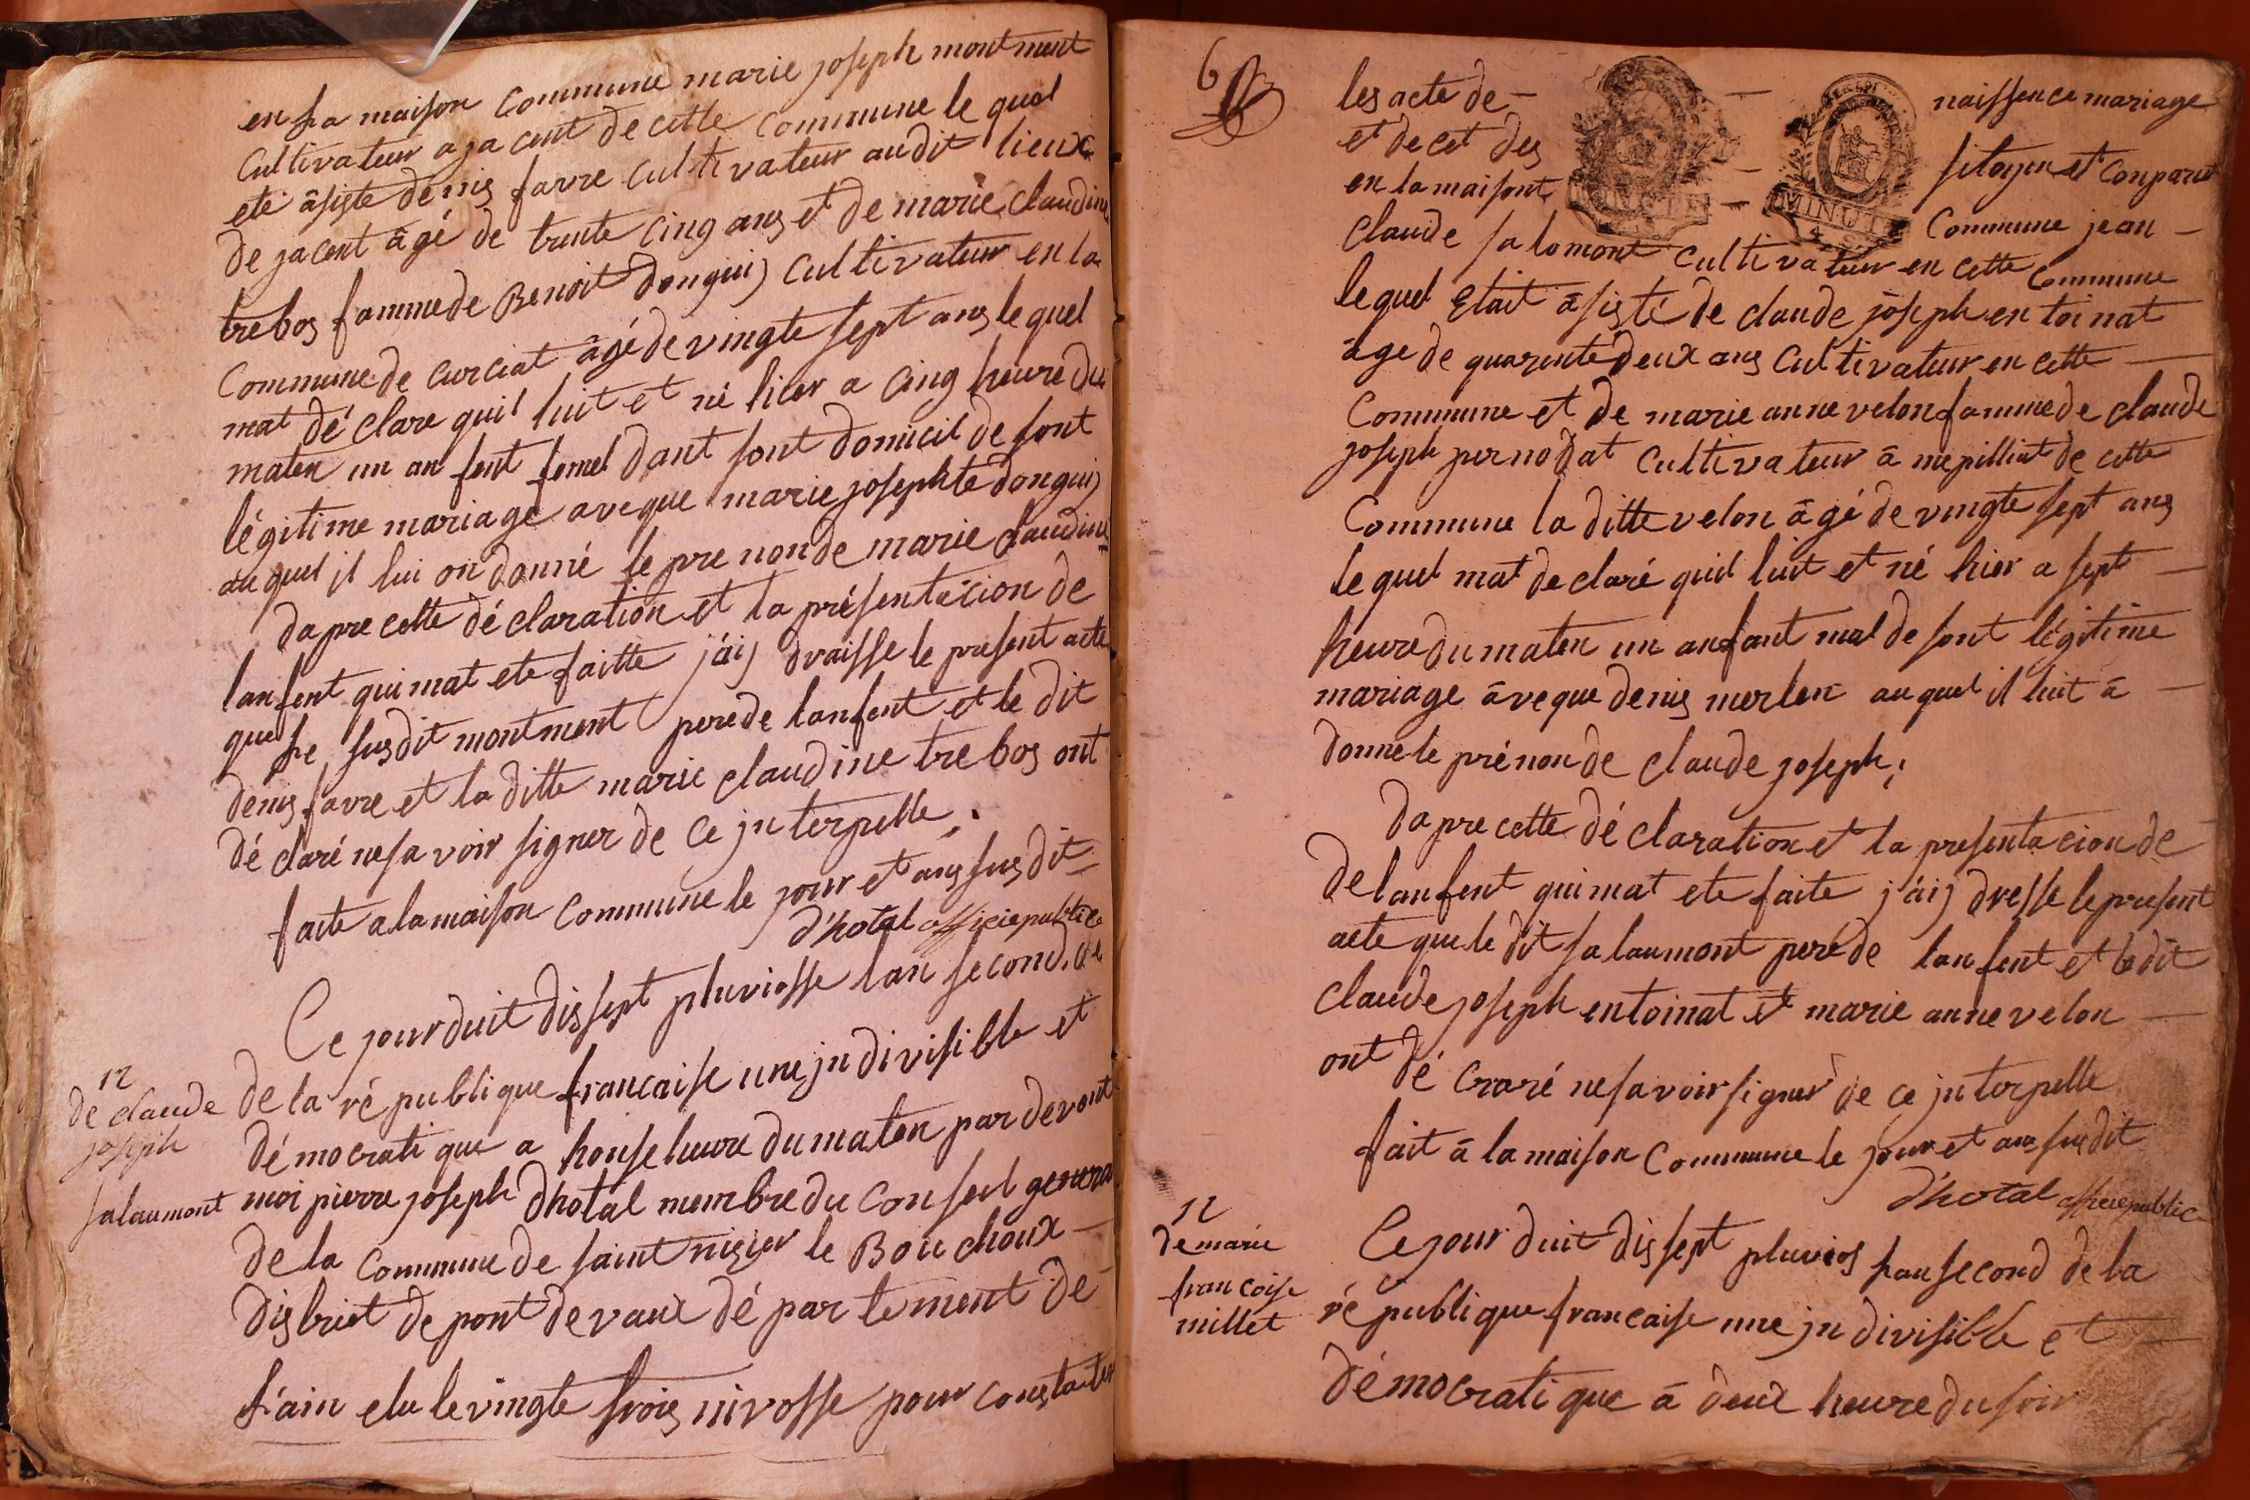 en la maison commune marie joseph montment
cultivateur a jacent de cette commune le quel
ete âsiste denis favre cultivateur audit lieux
de jacent âgé de trente cinq ans et de marie claudine
trebos famme de Benoit donguij cultivateur en la
commune de curciat âgé de vingte sept ans le quel
mat dé clare quil luit et né hier a cinq heure du
maten un an fent femel dant sont domicil de sont
légitime mariage aveque marie josephte donguij
au quel il lui on donné le pre non de marie claudine
da pre cette dé claration et la présentacion de
lanfent qui mat ete faitte j'áij draisse le present acte
que le susdit montment pere de lanfent et le dit
denis favre et la ditte marie claudine trebos ont
dé claré ne sa voir signer de ce jnterpelle.
faite a la maison commune le jour et ans susdit
d'hotal officie publice
Ce jourduit dissept pluviosse lan second.
12
de claude
joseph
salaumont
de la ré publique francaise une jndivisible et
démocrati que a honse heure du maten par devant
moi pierre joseph dhotal membre du conseil general
de la commune de saint nisier le Bouchoux
district de pont de vaux dé par tement de
l'ain elu le vingte trois nivosse pour constater
6
les acte de — — naissence mariage
et decet des — sitoyen et conparut
en la maisont — commune jean —
MINUTE
MINUTE
claude salomont cultivateur en cette commune
le quel etait âsisté de claude joseph entoinat
âge de quarente deux ans cultivateur en cette —
commune et de marie anne velon famme de claude
joseph pernodat cultivateur â mepilliat de cette
commune la ditte velon âgé de vingte sept ans
le quel mat de claré quil luit et né hier a sept —
heure du maten un anfant mal de sont légitime
mariage âveque denis merlen au quel il luit â —
donne le prénon de claude joseph;
da pre cette dé claration et la presentacion de
de lanfent qui mat ete faite j'áij dresse le present
acte que le dit salaumont pere de lanfent et le dit
claude joseph entoinat et marie anne velon —
ont dé craré ne savoir signer de ce jnterpelle
fait â la maison commune le jour et ans susdit
d'hotal officie public
12
de marie
francoise
millet
Ce jour duit dissept pluvios lan second de la
ré publique francaise une jndivisible et —
démocrati que â deux heure du soir